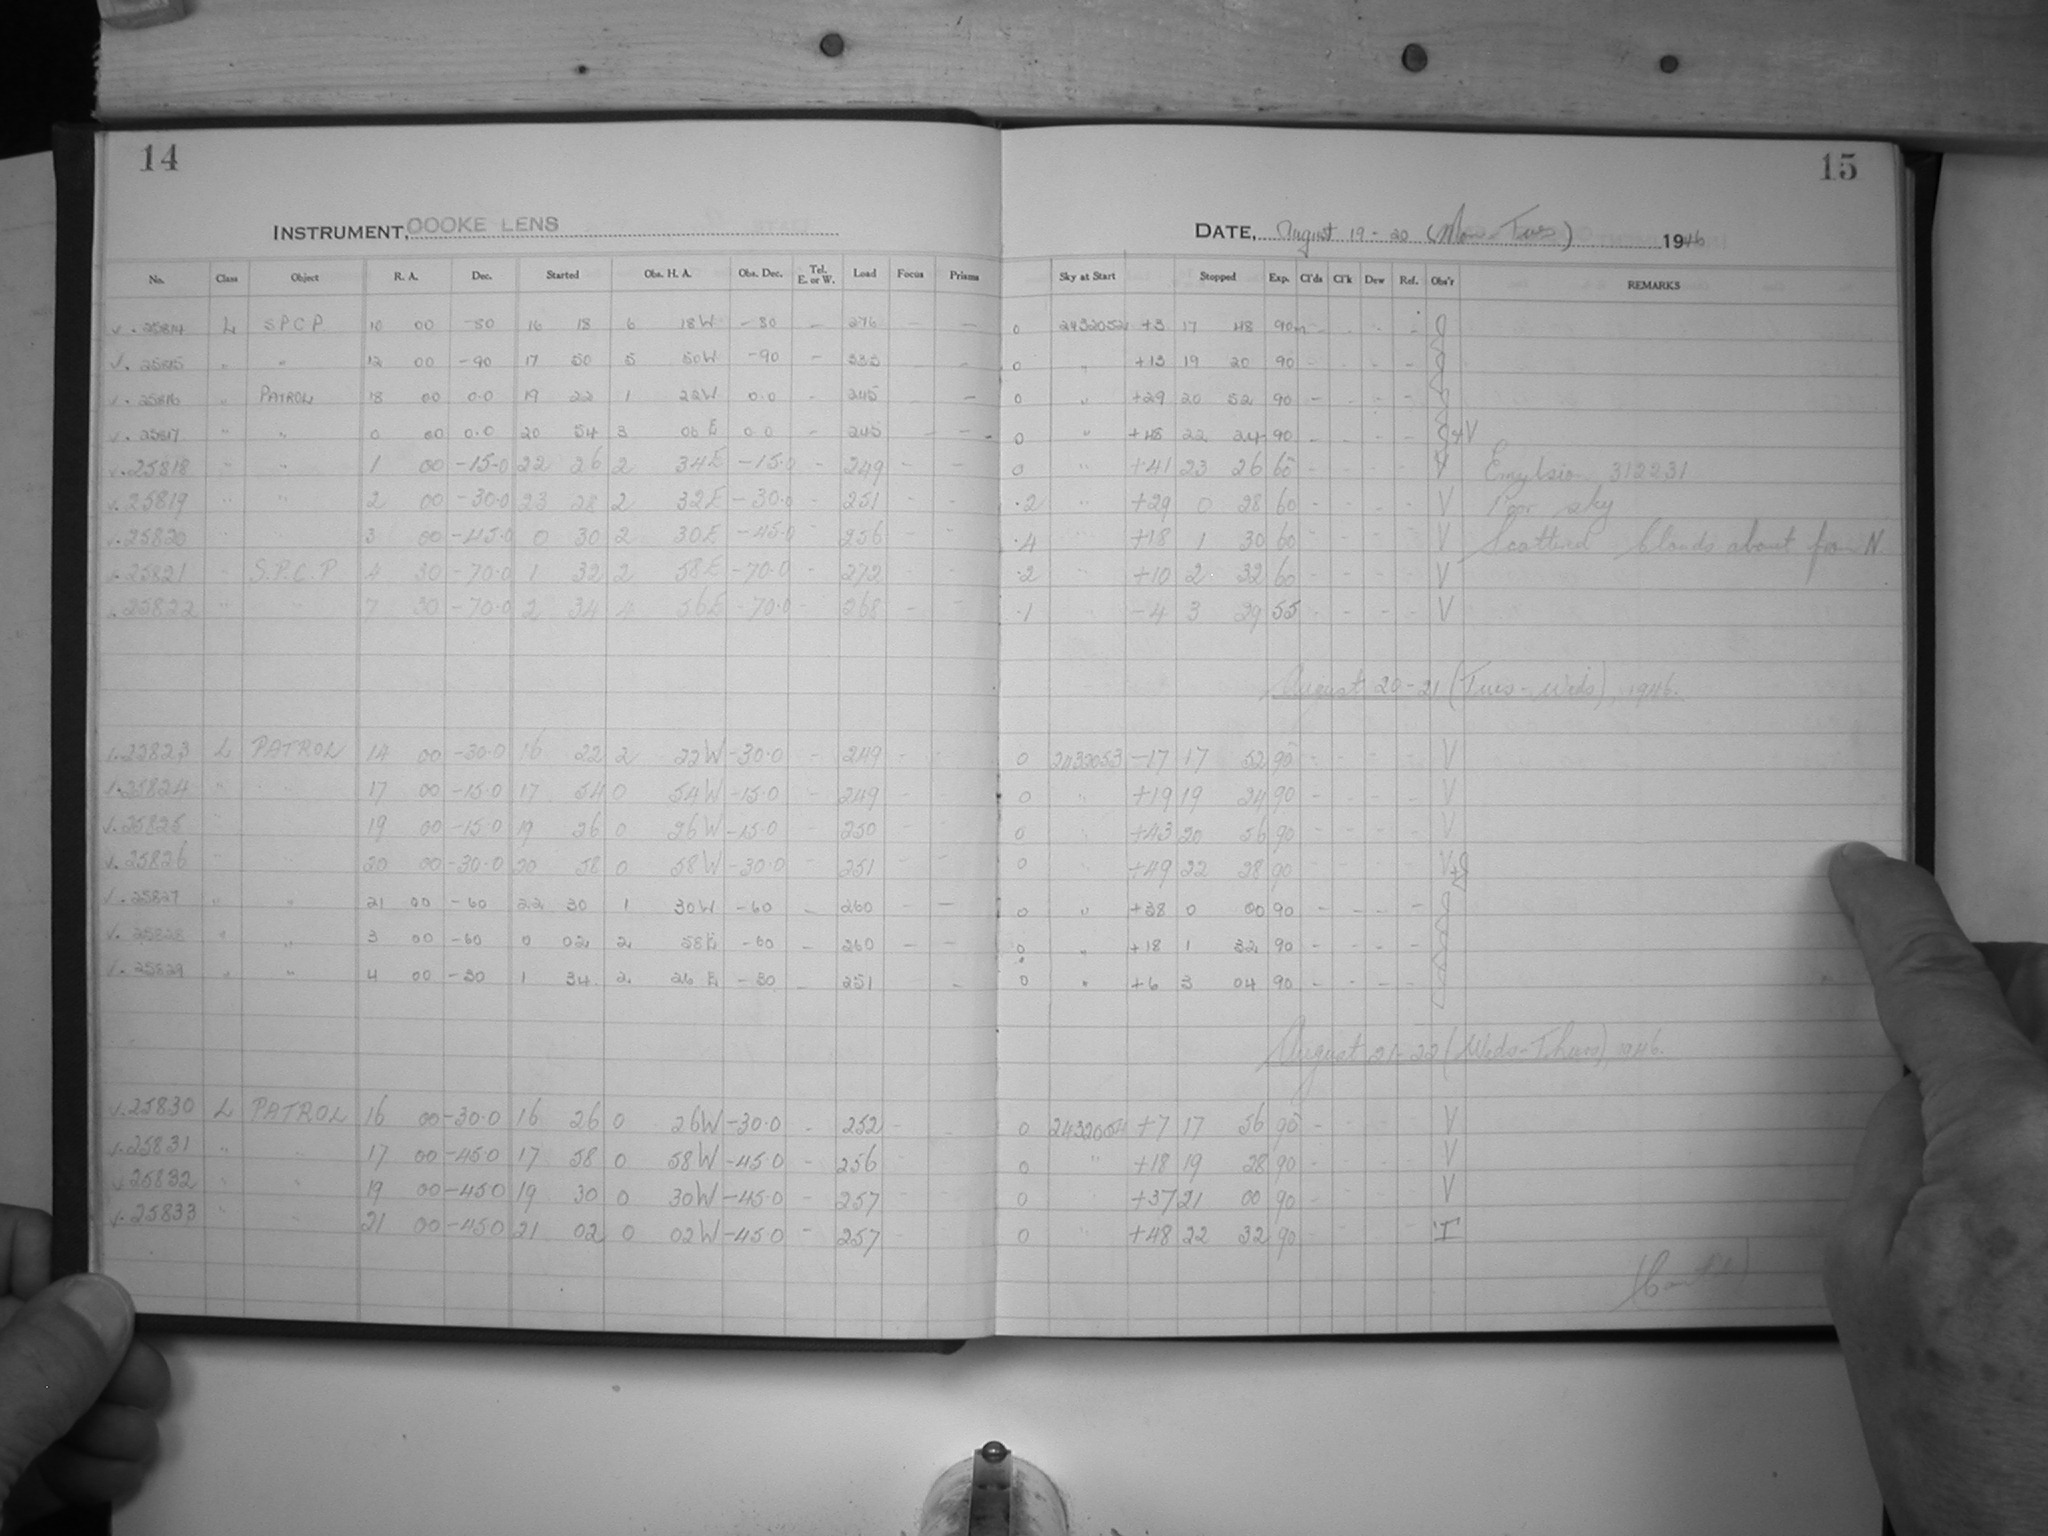 14
INSTRUMENT, COOKE LENS
No. Class Object R. A. Dec. Started Obs. H. A. Obs. Dec. Tel. E. or W. Load Focus Prisms
v. 25814 L S.P.C.P. 10 00 -80 16 18 6 18W -80 - 276 - -
v. 25815 " " 12 00 -90 17 50 5 50W -90 - 335 -
v. 25816 " PATROL 18 00 0.0 19 22 1 22W 0.0 - 245 -
v. 25817 " " 0 00 0.0 20 54 3 06E 0.0 - 245 - -
v. 25818 " " 1 00 -15.0 22 26 2 34E -15.0 - 249 - -
v. 25819 " " 2 00 -30.0 23 28 2 32E -30.0 - 251 - -
v. 25820 " " 3 00 -45.0 0 30 2 30E -45.0 - 256 - -
v. 25821 " S.P.C.P 4 30 -70.0 1 32 2 58E -70.0 - 272 - -
v. 25822 " " 7 30 -70.0 2 34 4 56E -70.0 - 268 - -
v. 25823 L PATROL 14 00 -30.0 16 22 2 22W -30.0 - 249 -
v. 25824 " " 17 00 -15.0 17 54 0 54W -15.0 - 249
v. 25825 " " 19 00 -15.0 19 26 0 26W -15.0 - 250
v. 25826 " " 20 00 -30.0 20 58 0 58W -30.0 - 251 -
v. 25827 " " 21 00 -60 22 30 1 30W -60 - 260 - -
v. 25828 " " 3 00 -60 0 02 2 58E -60 - 260 - -
v. 25829 " " 4 00 -30 1 34 2 26E -30 - 251 -
v. 25830 L PATROL 16 00 -30.0 16 26 0 26W -30.0 - 252 -
v. 25831 " " 17 00 -45.0 17 58 0 58W -45.0 - 256 -
v. 25832 " " 19 00 -45.0 19 30 0 30W -45.0 - 257 -
v. 25833 " " 21 00 -45.0 21 02 0 02W -45.0 - 257 -
15
DATE, August 19-20 (Mon-Tues) 1946
Sky at Start Stopped Exp. Cl'ds Cl'k Dew Ref. Obs'r REMARKS
0 2432052 +3 17 48 90m - - -
0 " +13 19 20 90 - - - -
0 " +29 20 52 90 - - - -
0 " +45 22 24 90 - - - - J+V
0 " +41 23 26 60 - - - - V Emulsion 312231
.2 " +29 0 28 60 - - - - V Poor sky
.4 " +18 1 30 60 - - - - V Scattered clouds about from N.
.2 " +10 2 32 60 - - - - V
.1 " -4 3 29 55 - - - - V
August 20-21 (Tues-Weds), 1946.
0 2432053 -17 17 52 90 - - - - V
0 " +19 19 24 90 - - - - V
0 " +43 20 56 90 - - - - V
0 " +49 22 28 90 - - - - V+J
0 " +38 0 00 90 - - - - J
0 " +18 1 32 90 - - - -
0 " +6 3 04 90 - - - -
August 21-22 (Weds-Thurs) 1946.
0 2432054 +7 17 56 90 - - - - V
0 " +18 19 28 90 - - - - V
0 " +37 21 00 90 - - - - V
0 " +48 22 32 90 - - - - I
(Cont'd)